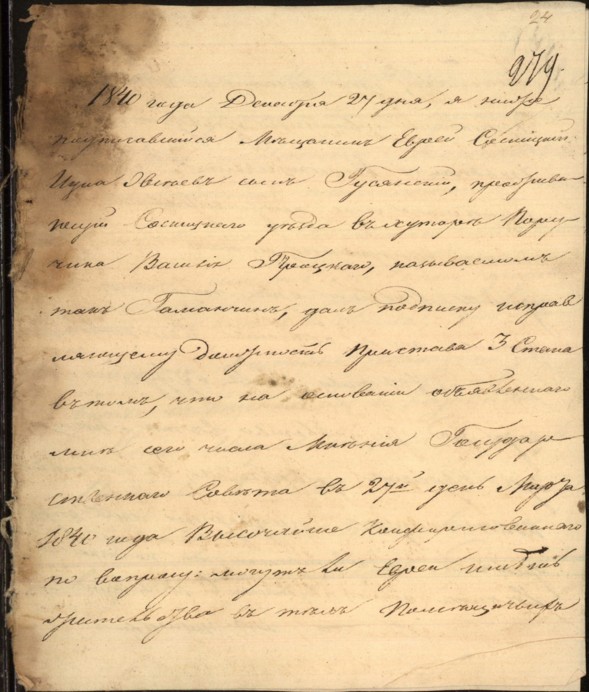 24
279.
1840 года Декабря 27 дня, я ниже
подписавшийся Мещанинъ Еврей Сосницкий
сынъ Гусянский, прожива-
ющий Сосницкаго уезда въ хуторе Пору-
чика Троцкаго, называемомъ
такъ далъ подписку исправ-
ляющему Должность Пристава 3 Стана
въ томъ, что на основании объявленнаго
мне сего числа Мнения Государ-
ственнаго Совета въ 27й день Марта
1840 года Высочайше Конфирмованнаго
по вопросу: могутъ ли Евреи иметь
жительство въ техъ Помещичьихъ